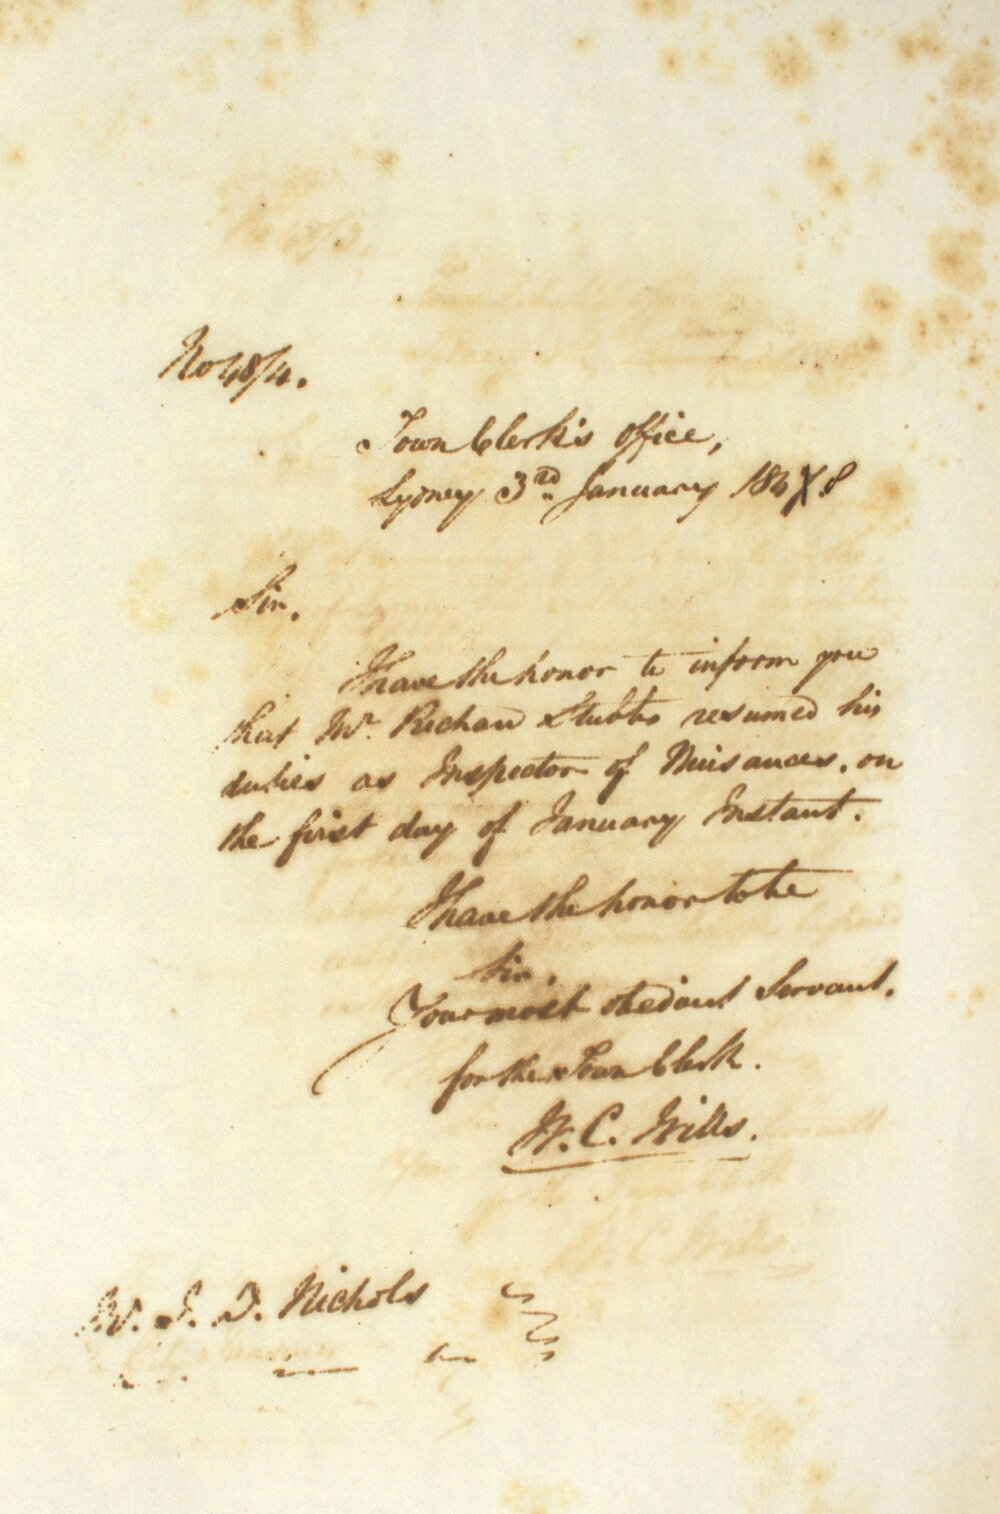 No 48/4.
Town Clerk's Office,
Sydney 3rd January 1848
Sir,
I have the honor to inform you
that Mr. Richard Stubbs resumed his
duties as Inspector of Nuisances, on
the first day of January Instant.
I have the honor to be
Sir,
Your most obedient Servant,
for the Town Clerk.
W. C. Wills.
W. J. D. Nichols